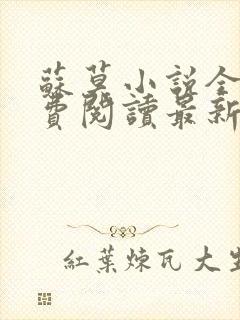 蘇莫小説全
費閱讀最新
紅葉煉瓦大